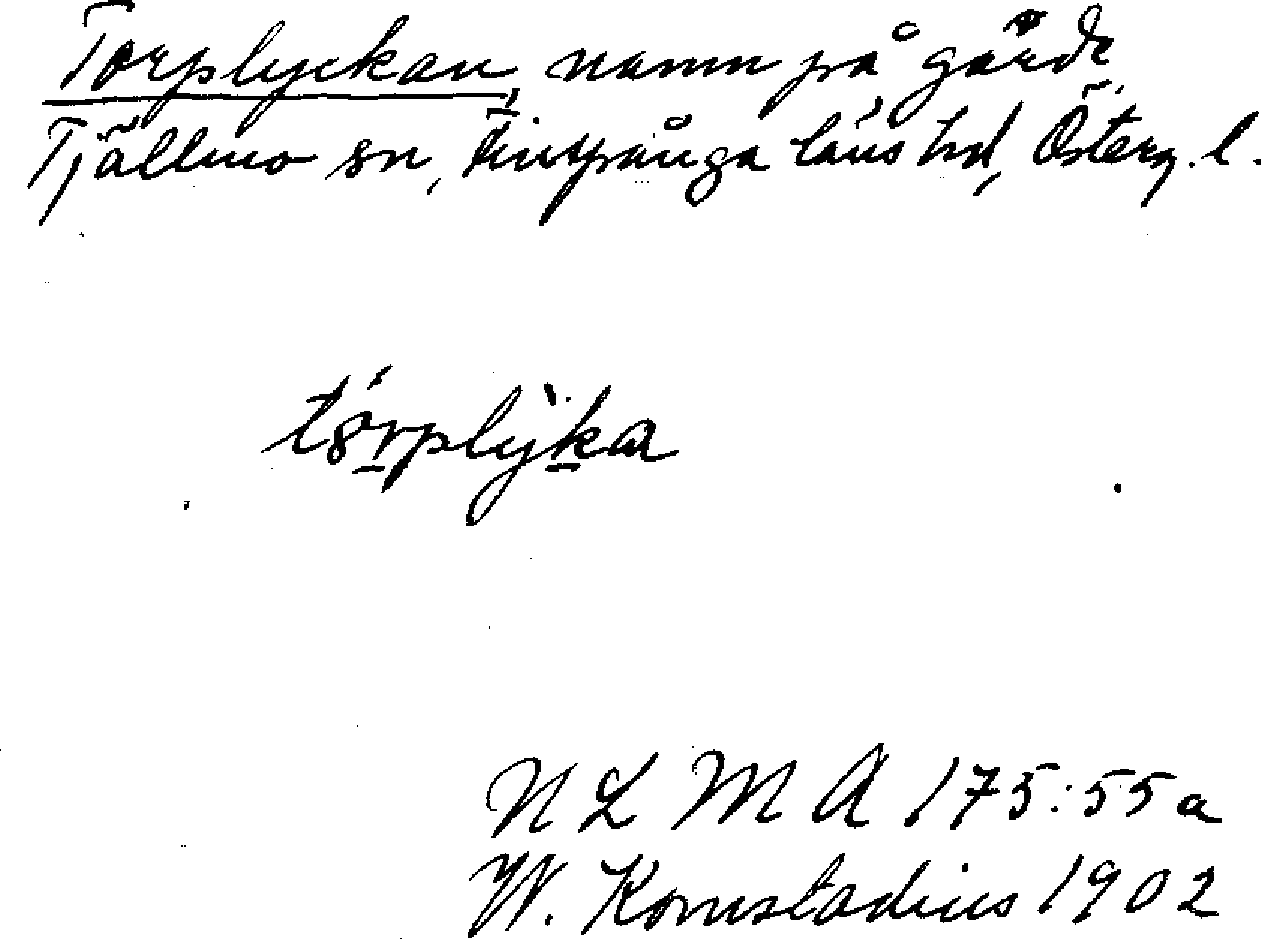 Torplyckan, namn på gärde,
Tjällmo sn, Finspånga läns hd, Österg. l.
N L M A 175:55a
W. Komstadius 1902